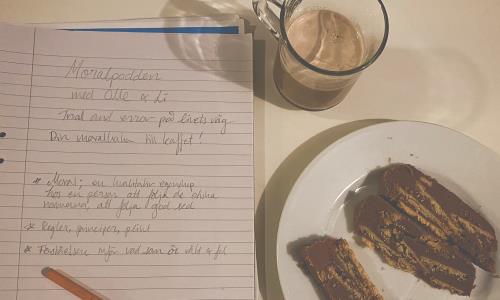 Moralpodden
med Olle & Li
Trial and error på livets väg
Din moralkaka till kaffet!
* Moral; en
hos en person att följa de
normerna, att följa god sed
* Regler, principer, plikt
* Förståelsen för vad som är rätt & fel